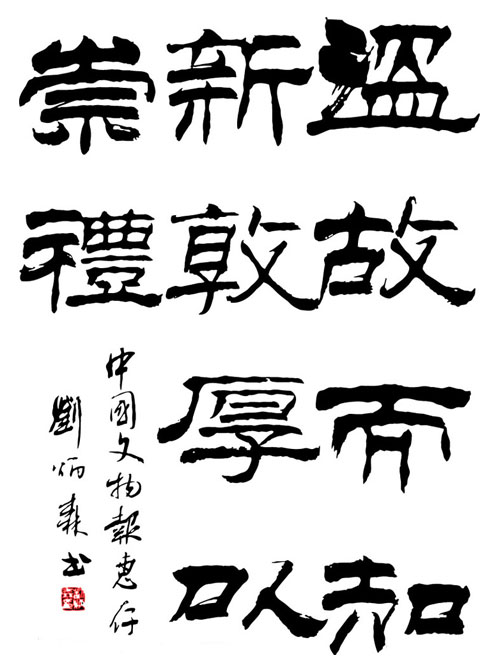 溫故而知
新敦厚以
崇禮
中國文物報惠存
劉炳森书